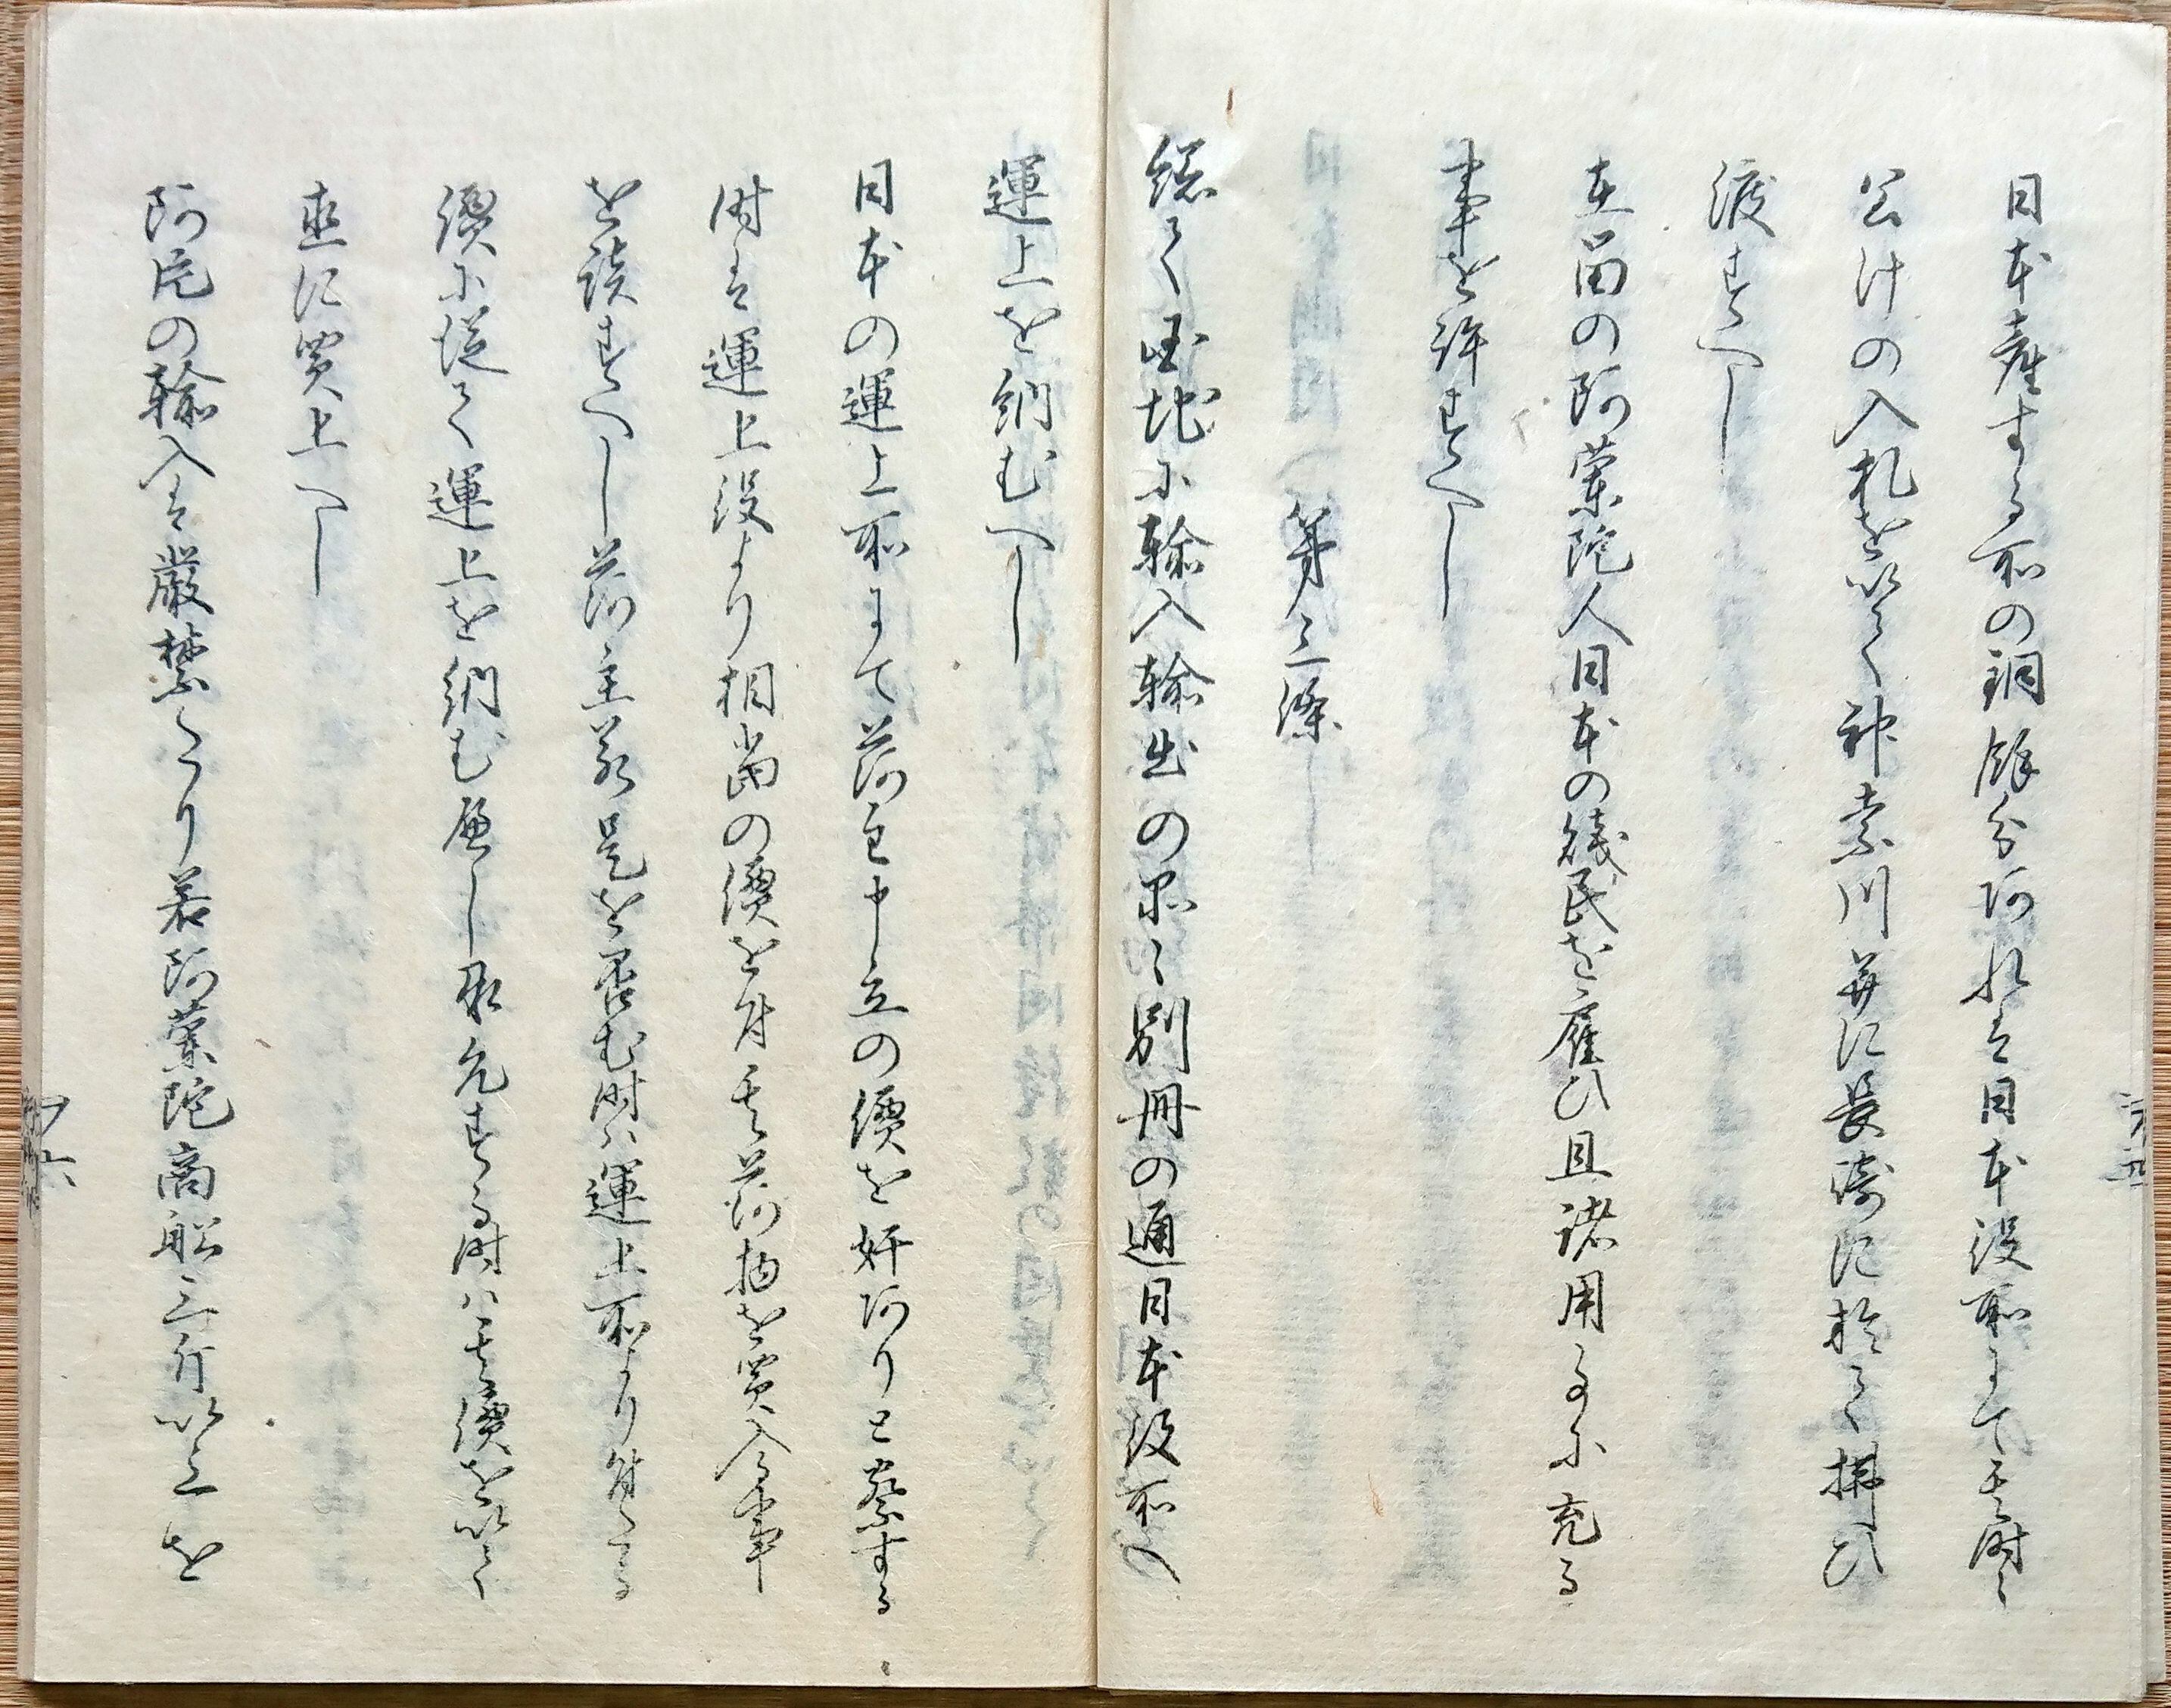 日本産する所の銅餘分阿れは日本役所にて其時々
公けの入札を以て神奈川并に長崎に於て拂ひ
渡すへし
在留の阿蘭陀人日本の賎民を雇ひ且諸用事に充る
事を許すへし
第三條
總て国地に輸入輸出の品々別冊の通日本役所へ
運上を納むへし
日本の運上所にて荷主申立の價を奸阿りと察する
時は運上役より相当の價を付其荷物を買入る事
を談すへし荷主若是を否む時ハ運上所より付たる
價に從て運上を納む遍し承允する時ハ其價を以て
直に買上へし
阿片の輸入は嚴禁たり若阿蘭陀商船三斤以上を
六